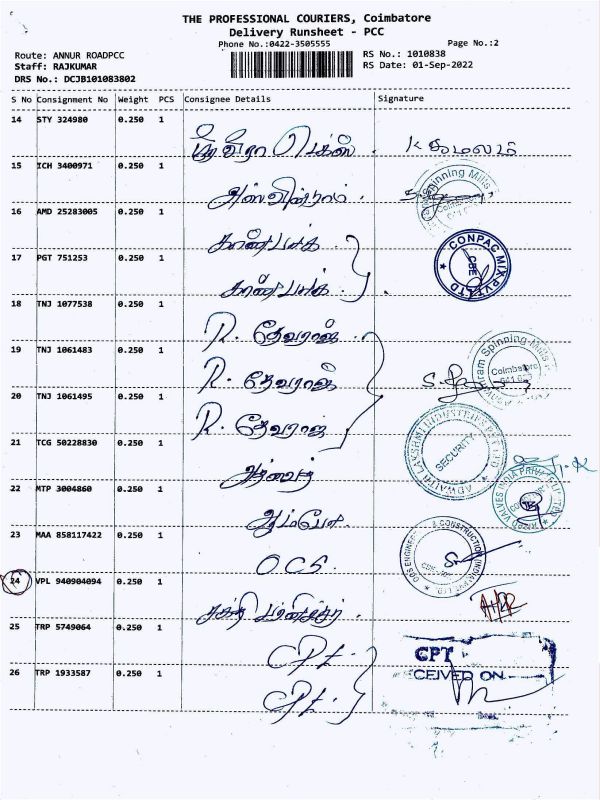 THE PROFESSIONAL COURIERS, Coimbatore
Delivery Runsheet - PCC
Phone No.:0422-3505555
Page No.:2
Route: ANNUR ROADPCC
RS No.: 1010838
Staff: RAJKUMAR
RS Date: 01-Sep-2022
DRS No.: DCJB101083802
S No Consignment No Weight PCS Consignee Details Signature
14 STY 324980 0.250 1
K கமலம்
15 ICH 3400971 0.250 1 அஸ்வின்ராம்.
Spinning Mills
Coimbatore
16 AMD 25283005 0.250 1
17 PGT 751253 0.250 1
CONPAC MIX PVT LTD
CBE
18 TNJ 1077538 0.250 1 R. தேவராஜ்
19 TNJ 1061483 0.250 1 R. தேவராஜ்
Spinning Mills
Coimbatore
20 TNJ 1061495 0.250 1 R. தேவராஜ்
21 TCG 50228830 0.250 1
ADWAITH LAKSHMI INDUSTRIES PVT LTD
SECURITY
22 MTP 3004860 0.250 1
VALVES INDIA PRIVATE
23 MAA 858117422 0.250 1 O.C.S
& CONSTRUCTION
24 VPL 940904094 0.250 1
25 TRP 5749064 0.250 1 CPT.
CPT
CEIVED ON
26 TRP 1933587 0.250 1 CPT.